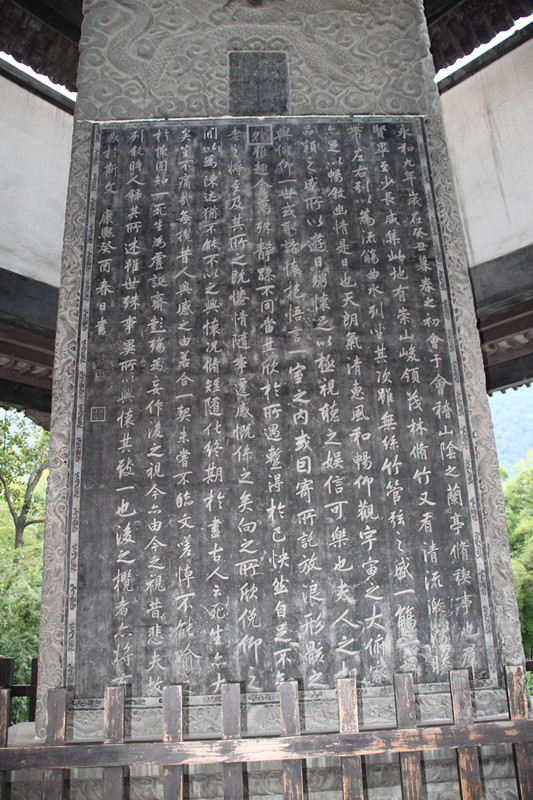 永和九年歲在癸丑暮春之初會于會稽山陰之蘭亭脩禊事也羣
賢畢至少長咸集此地有崇山峻領茂林脩竹又有清流激
帶左右引以為流觴曲水列坐其次雖無絲竹管弦之盛一觴
亦足以暢敘幽情是日也天朗氣清惠風和暢仰觀宇宙之大俯察
品類之盛所以遊目騁懷足以極視聽之娛信可樂也夫人之相
與俯仰一世或取諸懷抱悟言一室之內或因寄所託放浪形骸之
外雖趣舍萬殊靜躁不同當其欣於所遇暫得於己快然自足不知
老之將至及其所之既惓情隨事遷感慨係之矣向之所欣俛仰之
間以為陳迹猶不能不以之興懷況脩短隨化終期於盡古人云死生亦大
矣豈不痛哉每攬昔人興感之由若合一契未嘗不臨文嗟悼不能喻之
於懷固知一死生為虛誕齊彭殤為妄作後之視今亦由今之視昔悲夫故
列敘時人錄其所述雖世殊事異所以興懷其致一也後之攬者亦將有
感於斯文 康熙癸酉春日書